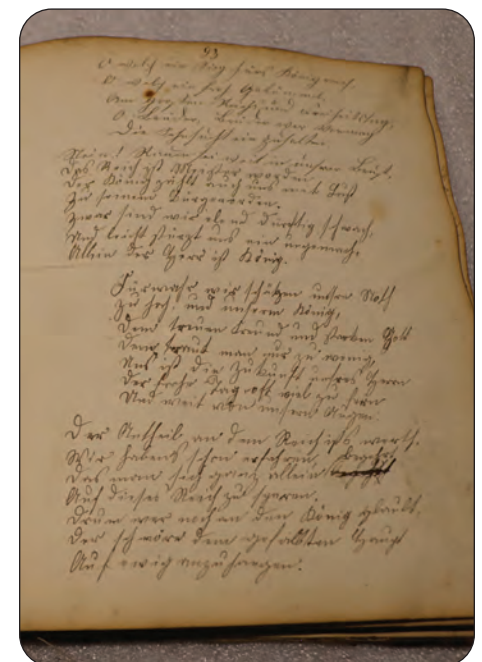 93
O welch ein Sieg fürs Königreich,
O welch ein hoch
Am großen Reichs und Freiheitstag,
O Brüder, Brüder wer vermag
Die Sehnsucht ein zuhalten.
Nein! Raum sei weit in unsrer Brust,
Das Reich ist Meister worden
Der König zählt auch uns mit Lust
Zu seinem Bürgerorden.
Zwar sind wir elend dürftig schwach,
Und leicht stürzt uns ein ungemach,
Allein der Herr ist König.
Fürwahr wir schätzen unsre Noth
Zu hoch, und unserm König,
Dem treuen Freund und starken Gott
Dem traut man nur zu wenig,
Uns ist die Zukunft unsres Herrn
Der frohe Tag oft viel zu fern
Und weit von unsern Augen.
Der Antheil an dem Reich ists werth.
Wir habens schon erfahren, begehrt
Das man sich ganz allein
Auf dieses Reich zu sparen.
Drum wer noch an den König glaubt,
Der schwöre dem gesalbten Haupt
Auf ewig anzuhangen.